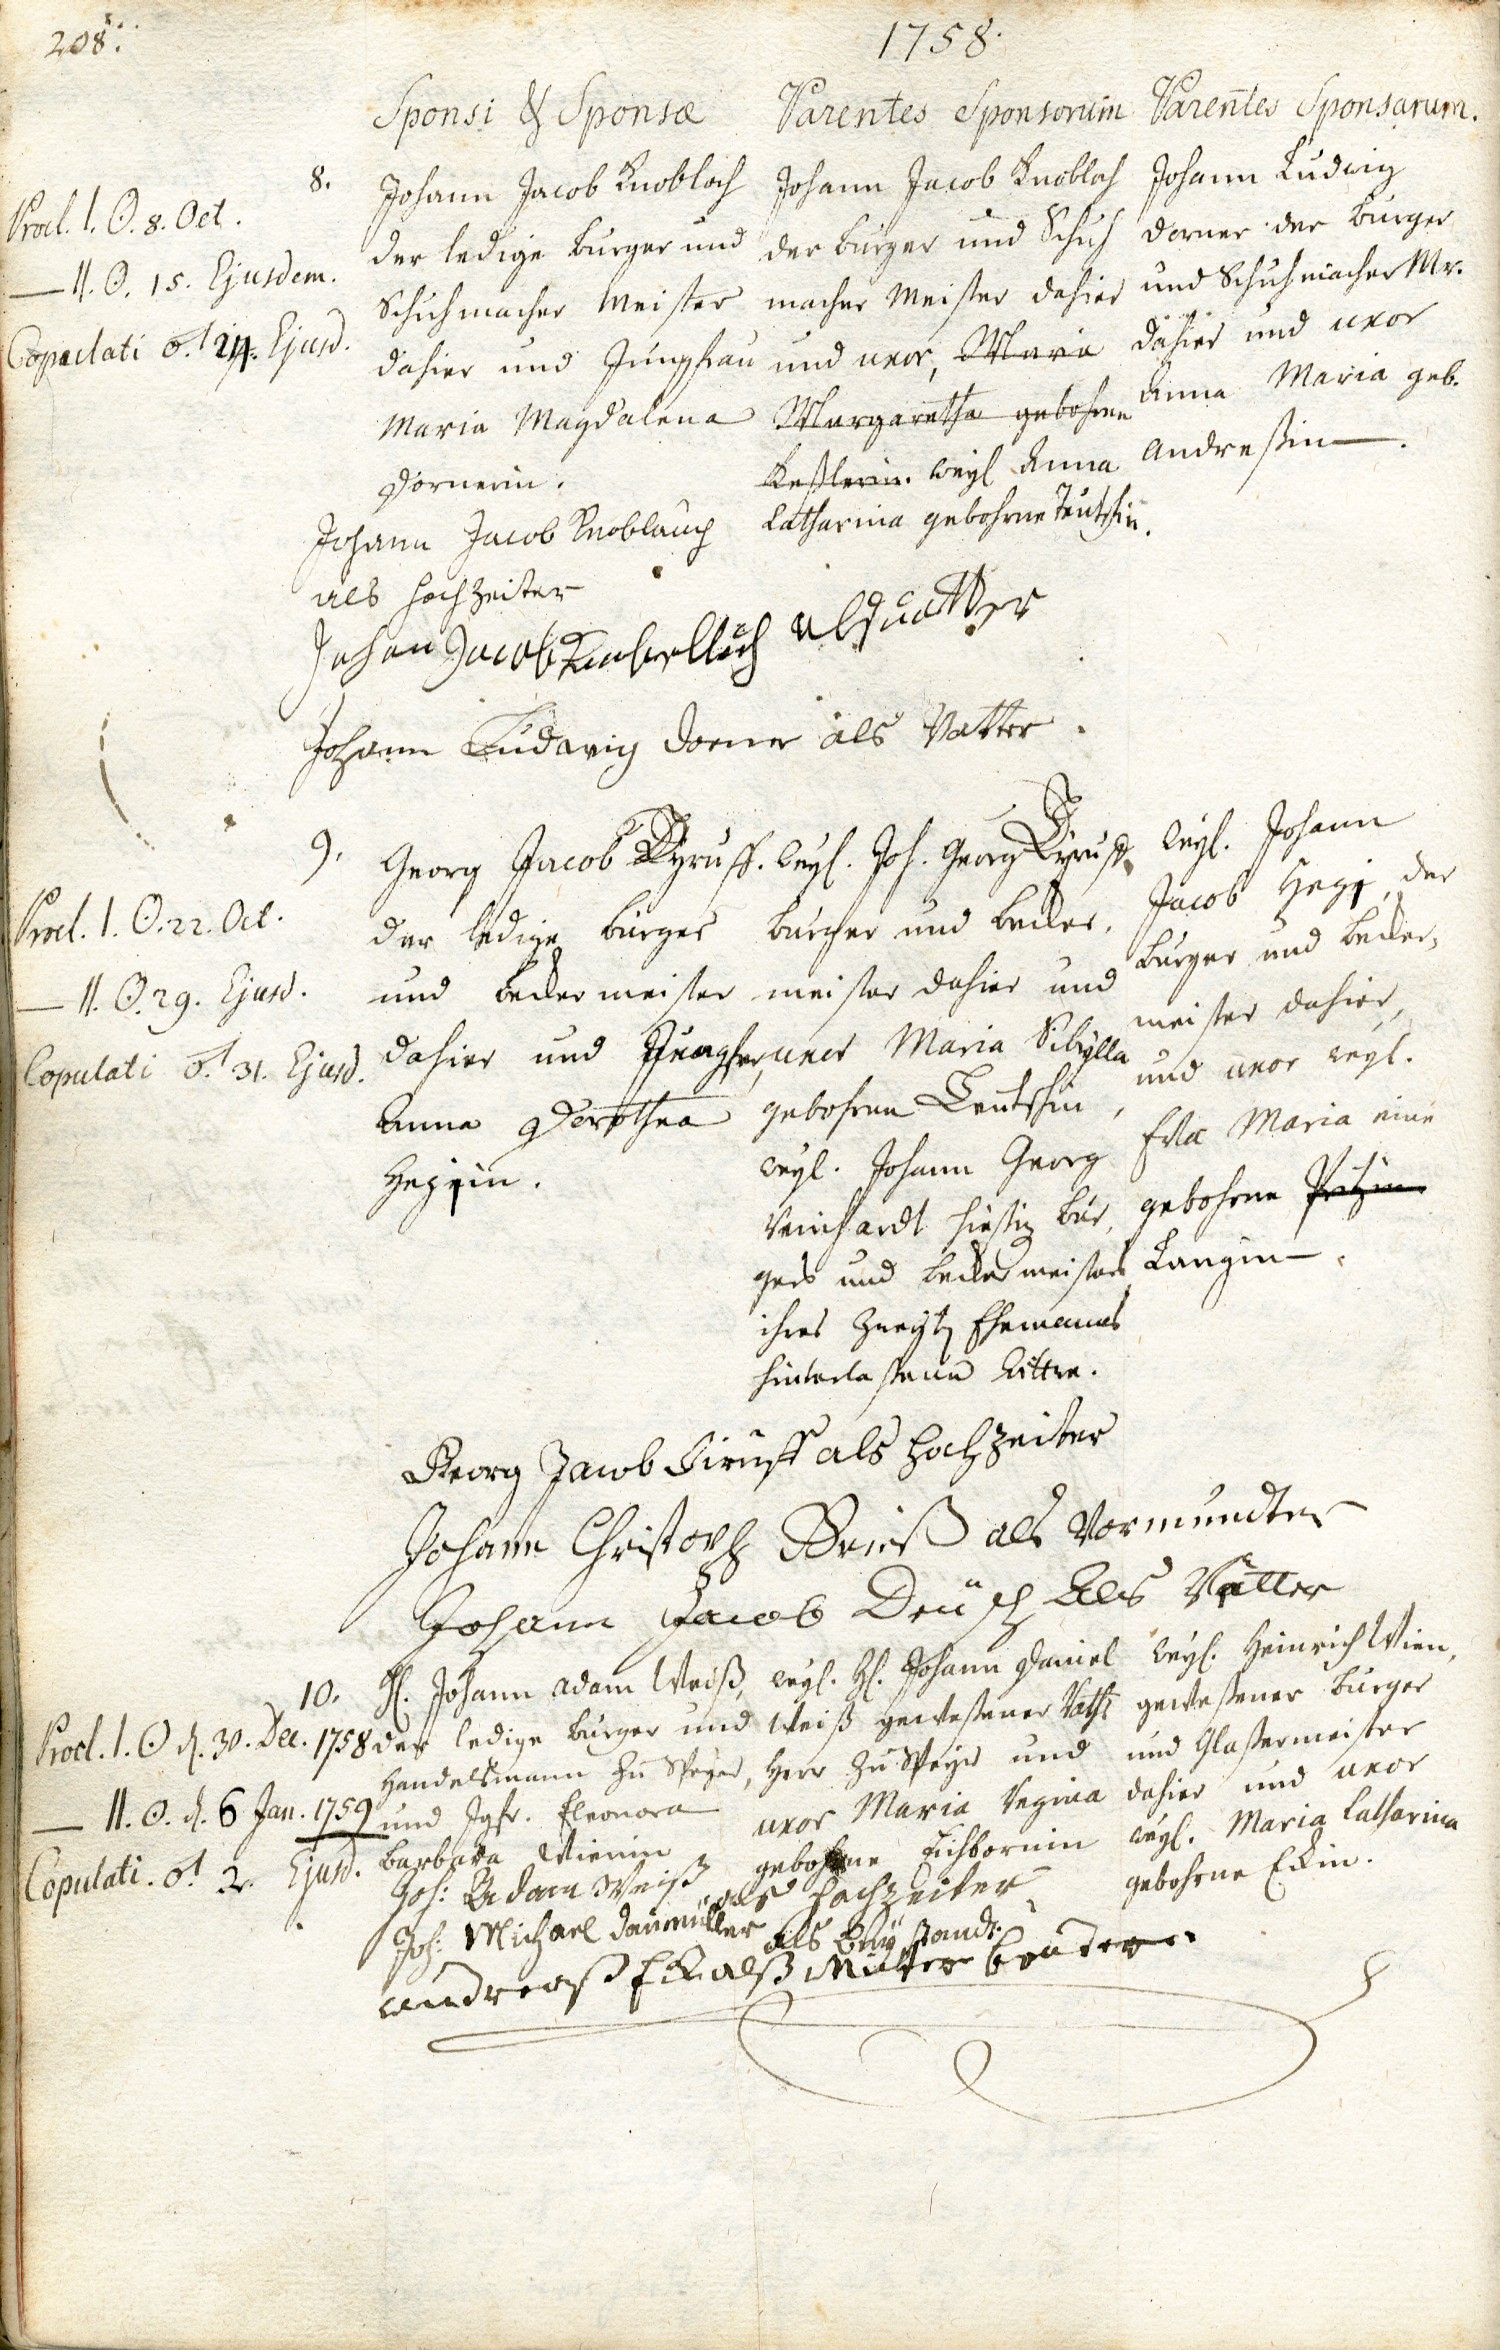 208.
1758.
Sponsi & Sponsæ
Parentes Sponsorum
Parentes Sponsarum.
Procl. I. ☉. 8. Oct.
— II. ☉. 15. Ejusdem.
Copulati ♂. 24. Ejusd.
8.
Johann Jacob Knobloch
der ledige burger und
Schuhmacher Meister
dahier und Jungfrau
Maria Magdalena
Dornerin.
Johann Jacob Knobloch
der burger und Schuh
macher Meister dahier
und uxor, Maria
Margaretha gebohrne
Keßlerin. weyl Anna
Catharina gebohrne Teutschin.
Johann Ludwig
Dorner der burger
und Schuhmacher Mr.
dahier und uxor
Anna Maria geb.
Andreßin.
Johann Jacob Knoblauch
als hochzeiter
Johan Jacob Knobelloch als Vatter
Johann Ludawig Dorner als Vatter.
Procl. I. ☉. 22. Oct.
— II. ☉. 29. Ejusd.
Copulati ♂. 31. Ejusd.
9.
Georg Jacob
der ledige burger
und becker meister
dahier und Jungfr.
Anna Dorothea
Hegiin.
weyl. Joh. Georg
burger und becker,
meister dahier und
uxor Maria Sibylla
gebohrne Teutschin,
weyl. Johann Georg
Reinhardt hiesig bur,
gers und becker meisters
ihres zweyt Ehemanns
hinterlaßene Wittwe.
weyl. Johann
Jacob Hegi, der
burger und becker,
meister dahier,
und uxor weyl.
Eva Maria eine
gebohrne
Langin.
Georg Jacob als hochzeiter
Johann Christoph Weiß als Vormundter
Johann Jacob Deüsch als Vetter
Procl. I. ☉ d. 30. Dec. 1758
— II. ☉. d. 6 Jan. 1759
Copulati. ♂. 2. Ejusd.
10.
H. Johann Adam Weiß,
der ledige burger und
Handelsmann zu Speyer,
und Jgfr. Eleonora
Barbara Wienin
weyl. H. Johann Daniel
Weiß geweßener Raths
Herr zu Speyer und
uxor Maria Regina
gebohrne Eichbornin
weyl. Heinrich Wien,
geweßener burger
und Glaßermeister
dahier und uxor
weyl. Maria Catharina
gebohrne Eckin.
Joh: Adam Weiß als Hochzeiter
Joh: Michael Daumüller als beystandt.
Andreaß Eck alß Mutter bruder